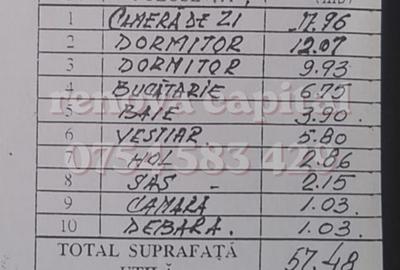 1 CAMERA DE ZI 17.96
2 DORMITOR 12.07
3 DORMITOR 9.93
4 BUCĂTARIE 6.75
5 BAIE 3.90.
6 VESTIAR. 5.80
7 HOL 2.86
8 SAS - 2.15
9 CAMARĂ 1.03.
10 DEBARA. 1.03.
TOTAL SUPRAFAȚĂ 57.48
UTILĂ
renova capital
583